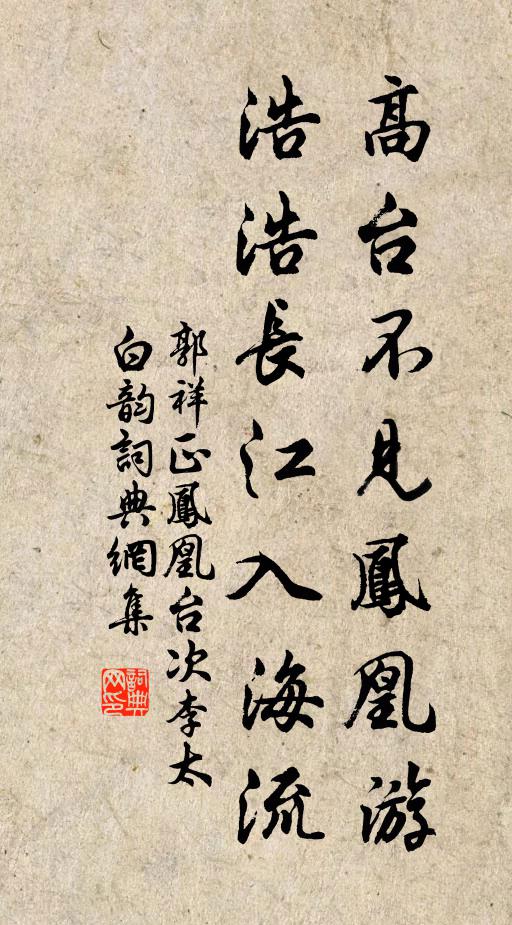 高台不見鳳凰游
浩浩長江入海流
郭祥正鳳凰台次李太
白韵詞典網集
詞典
网印